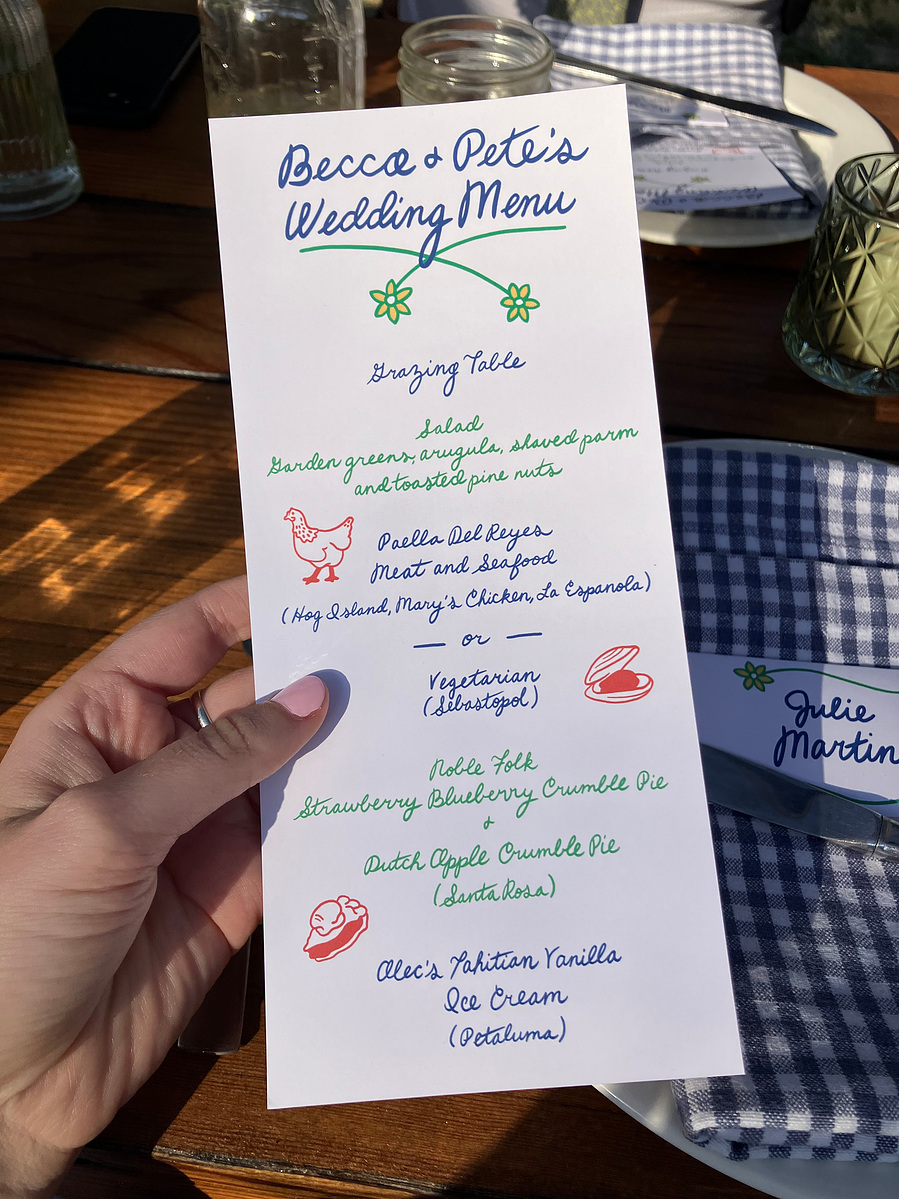 Becca & Pete's
Wedding Menu
Grazing Table
Salad
Garden greens, arugula, shaved parm
and toasted pine nuts
Paella Del Reyes
Meat and Seafood
(Hog Island, Mary's Chicken, La Espanola)
— or —
Vegetarian
(Sebastopol)
Noble Folk
Strawberry Blueberry Crumble Pie
&
Dutch Apple Crumble Pie
(Santa Rosa)
Alec's Tahitian Vanilla
Ice Cream
(Petaluma)
Julie
Martin